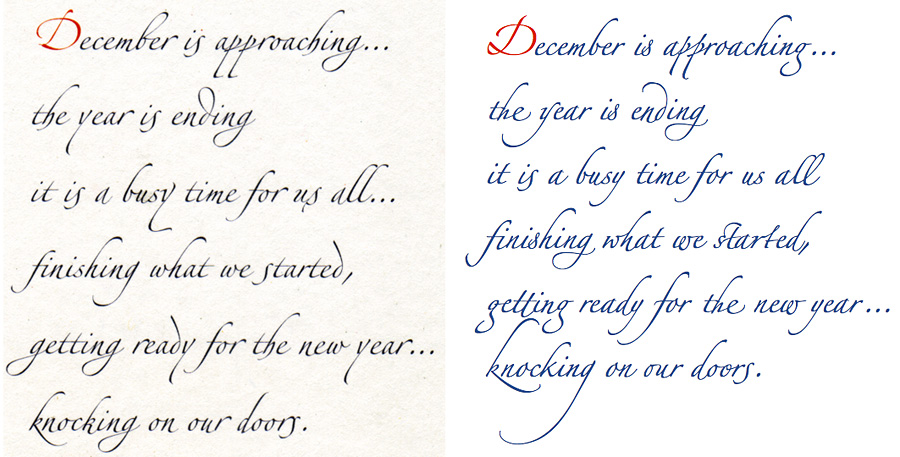 December is approaching...
the year is ending
it is a busy time for us all...
finishing what we started,
getting ready for the new year...
knocking on our doors.
December is approaching...
the year is ending
it is a busy time for us all
finishing what we started,
getting ready for the new year...
knocking on our doors.